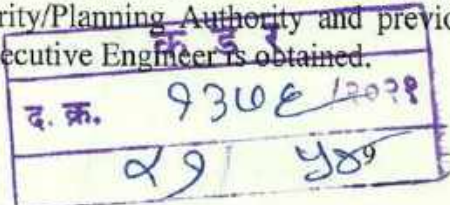 rity/Planning Authority and previo
ecutive Engineer is obtained.
क ड र
द. क्र. १३७६/२०२१
४१ ५४
9